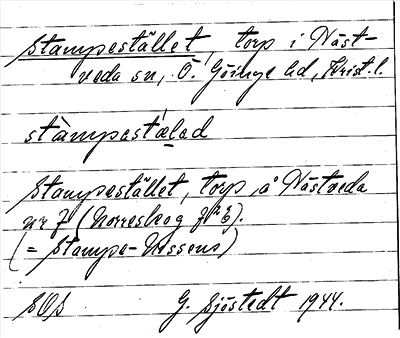 Stampestället, torp i Näst-
veda sn, Ö. Göinge hd, Krist. l.
stàmpastælad
Stampestället, torp å Nästveda
nr 7 (Norreskog
(= Stampe-Nissens)
SOS G. Sjöstedt 1944.